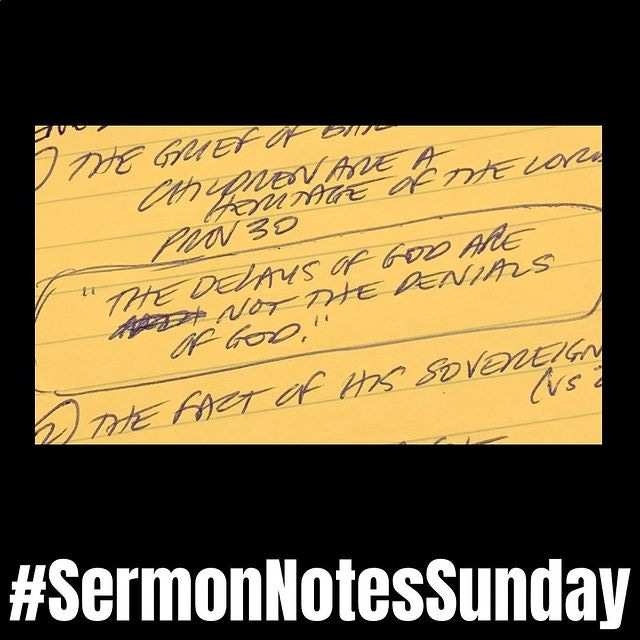 ) THE GRIEF OF
CHILDREN ARE A
HERITAGE OF THE LORD
PROV 30
" THE DELAYS OF GOD ARE
NOT THE DENIALS
OF GOD."
2) THE FACT OF HIS SOVEREIGN
(VS 2
#SermonNotesSunday